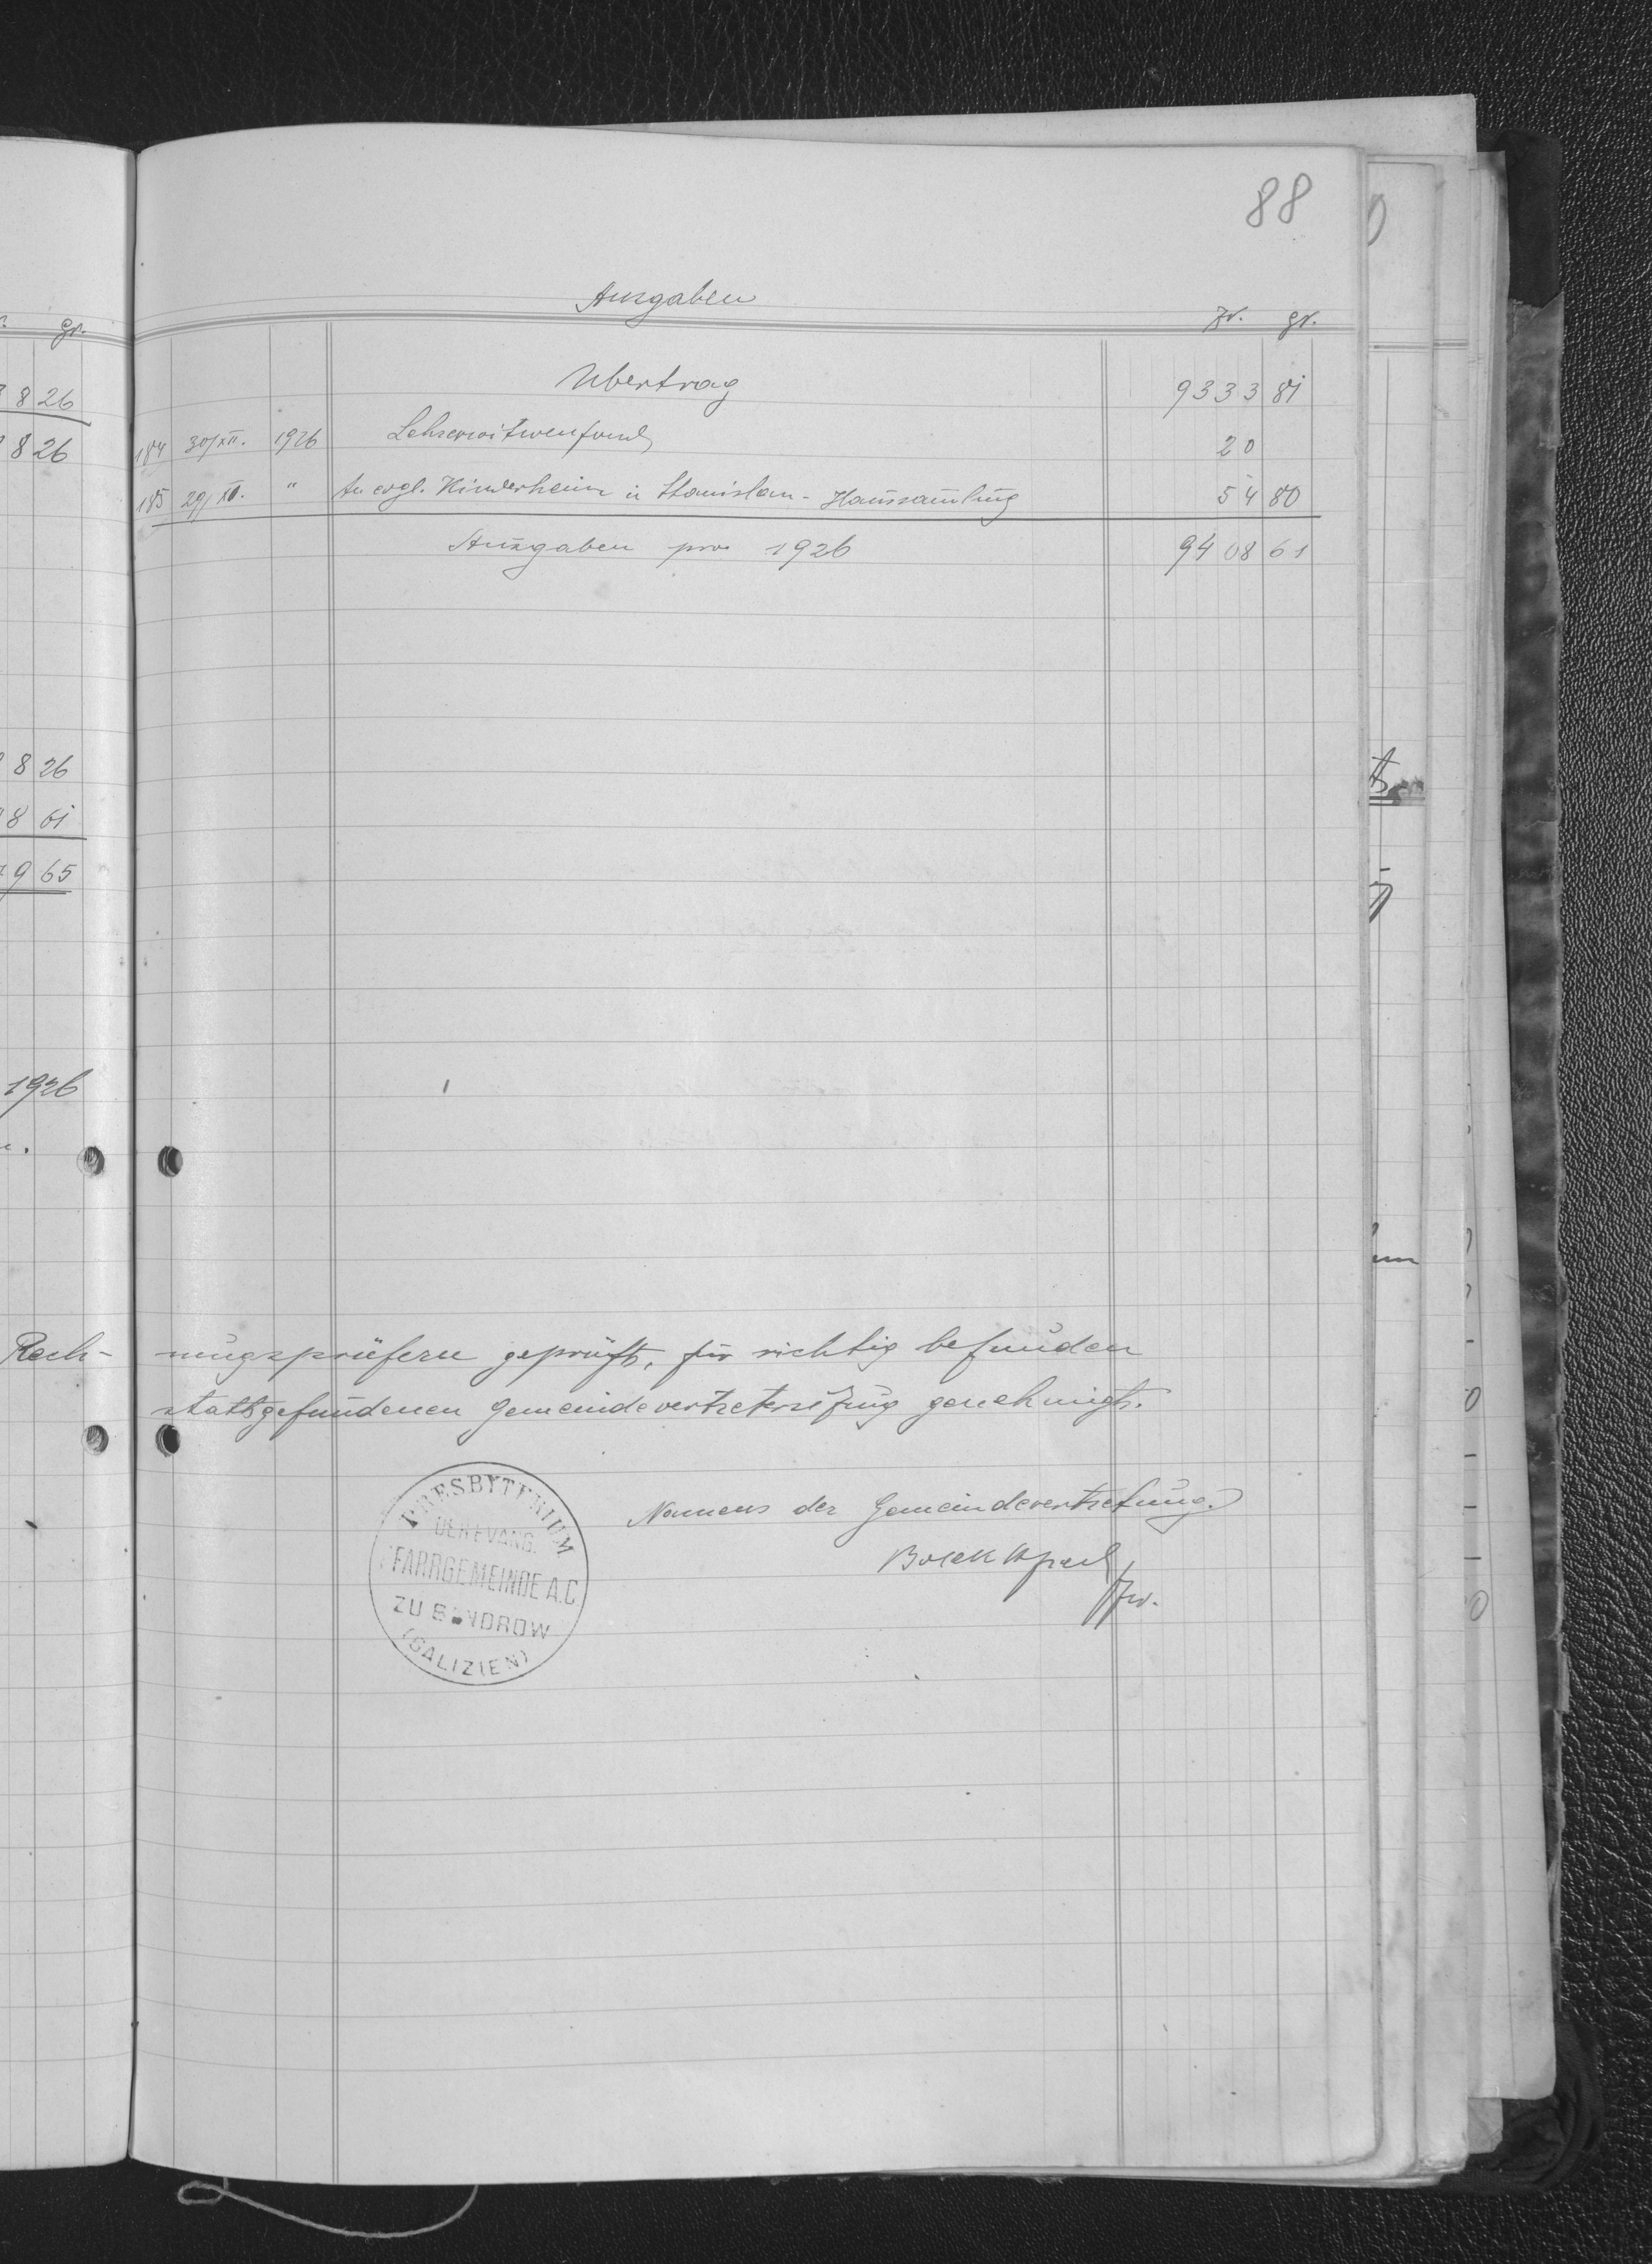 88
Ausgaben
zł. gr.
Übertrag 9333 81
184 30/XII. 1926 Lehrerwitwenfond 20
185 29/XII. " An evgl. Kinderheim in Stanislau - Haussamlung 54 80
Ausgaben pro 1926 9408 61
gr.
8 26
8 26
8 26
8 61
79 65
1926
Rech-
nungsprüfern geprüft, für richtig befunden
stattgefundenen Gemeindevertretersitzung genehmigt.
Namens der Gemeindevertretung.
PRESBYTERIUM
DER EVANG.
PFARRGEMEINDE A.C.
ZU BANDROW
(GALIZIEN)